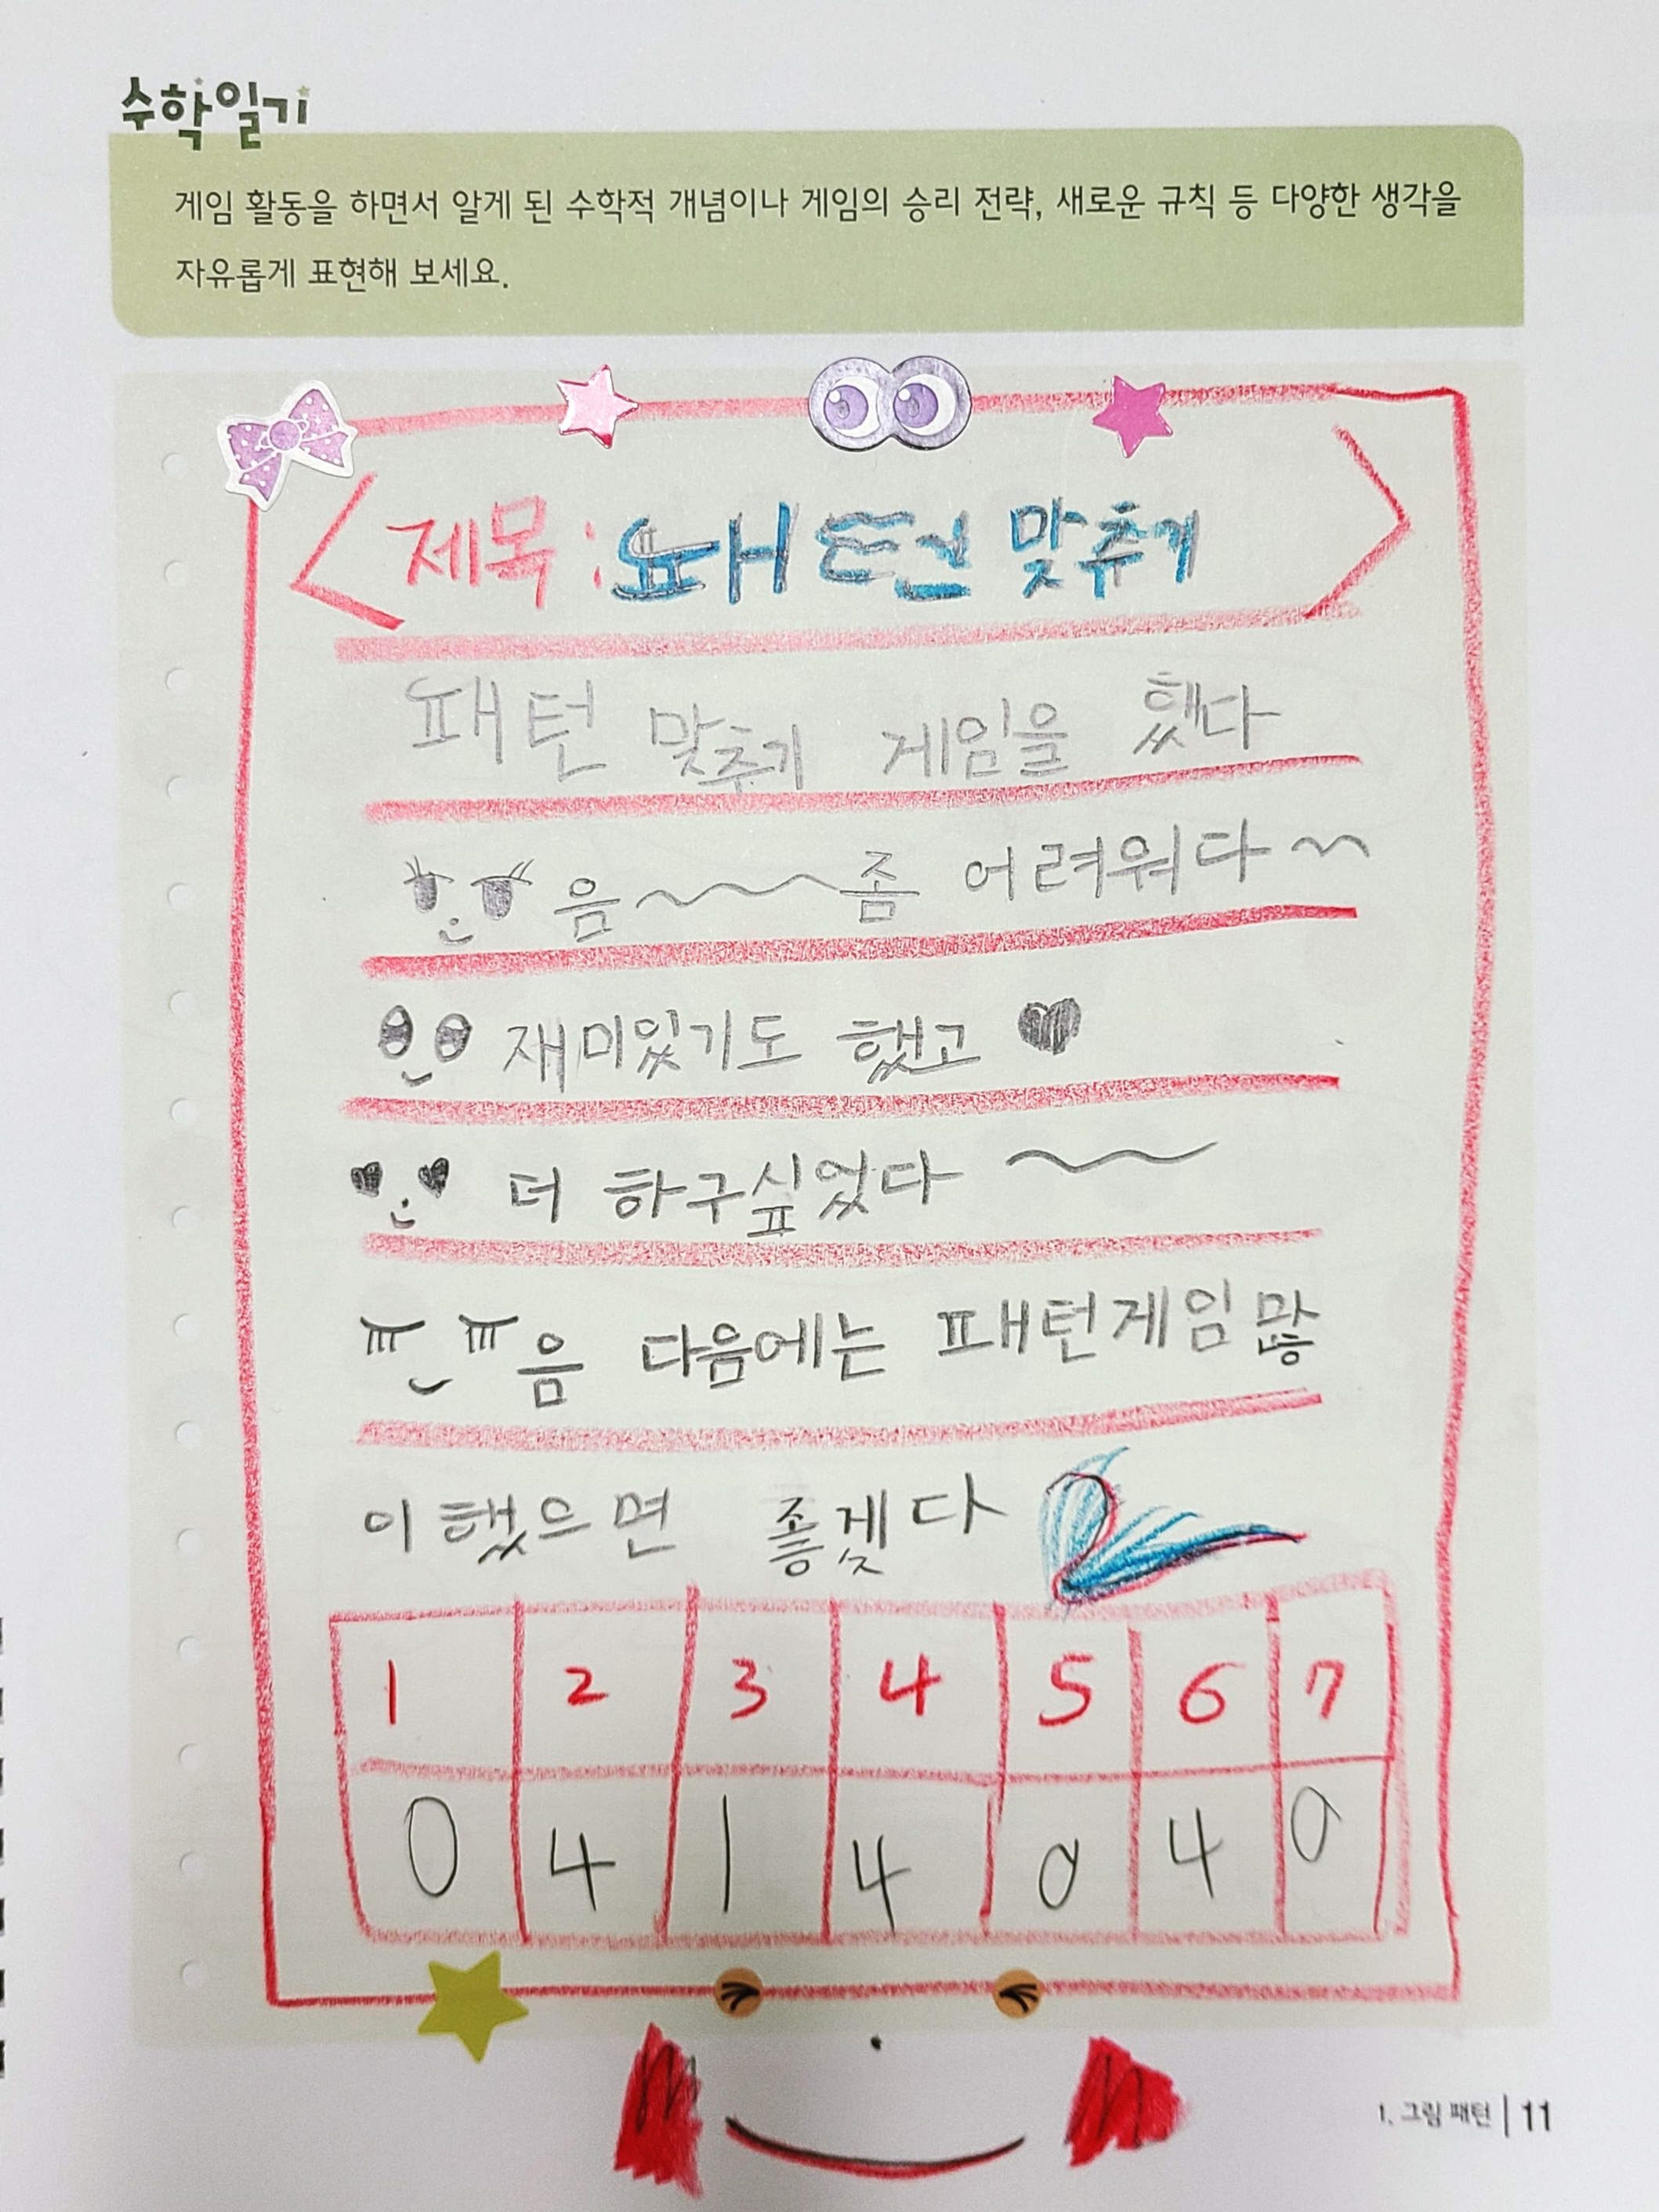 수학일기
게임 활동을 하면서 알게 된 수학적 개념이나 게임의 승리 전략, 새로운 규칙 등 다양한 생각을
자유롭게 표현해 보세요.
<제목:패턴 맞추기>
패턴 맞추기 게임을 했다
음~~좀 어려워다~
재미있기도 했고♥
더 하구싶었다~
음 다음에는 패턴게임많
이했으면 좋겢다
1 2 3 4 5 6 7
0 4 1 4 0 4 0
1. 그림 패턴 | 11